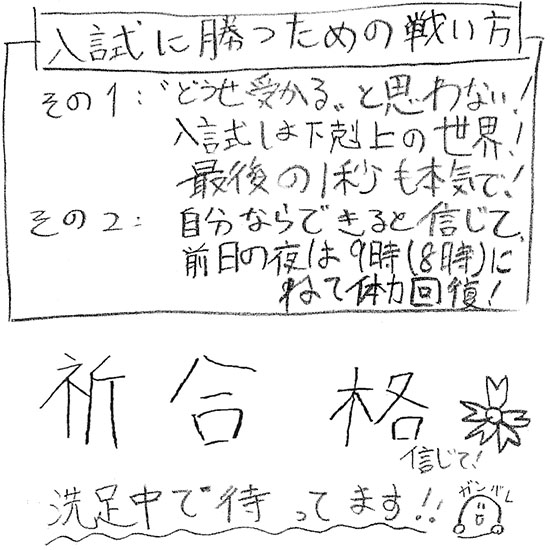 入試に勝つための戦い方
その1:"どうせ受かる"と思わない!
入試は下剋上の世界!
最後の1秒も本気で!
その2: 自分ならできると信じて、
前日の夜は9時(8時)に
ねて体力回復!
祈合格
信じて!
洗足中で待ってます!!
ガンバレ